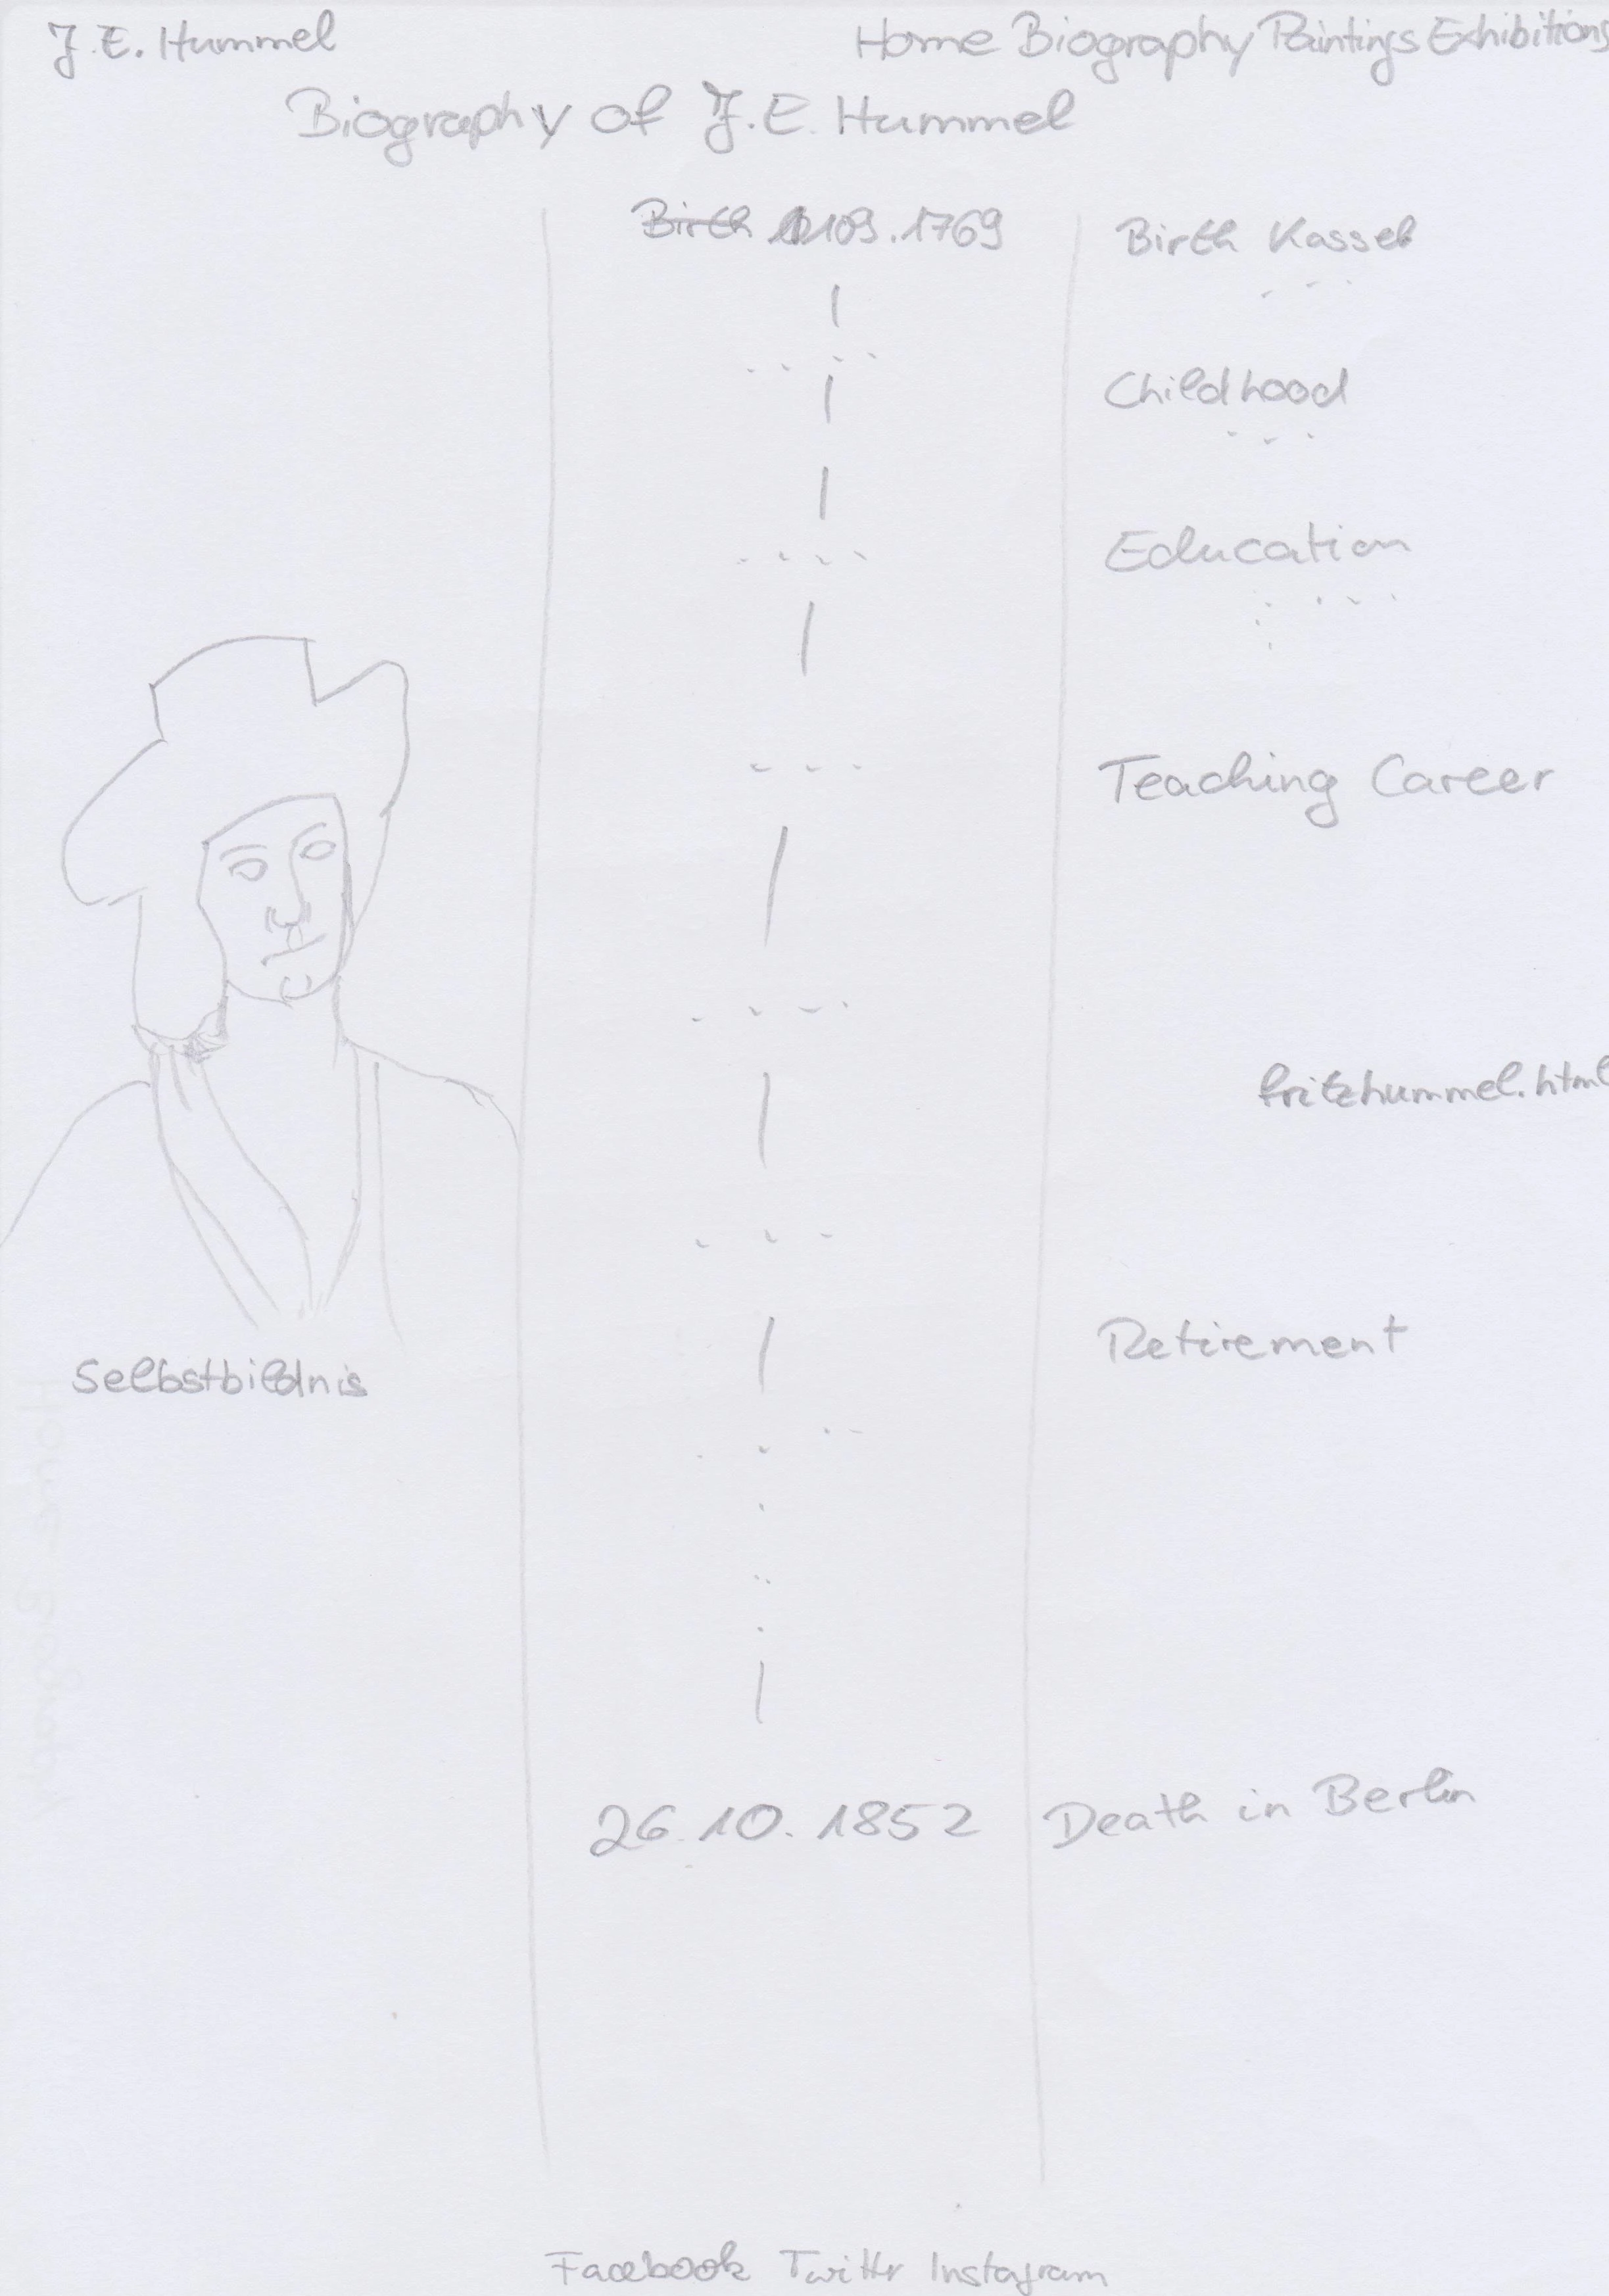 J. E. Hummel
Home Biography Paintings Exhibitions
Biography of J. E. Hummel
Birth 09.1769
Birth Kassel
Childhood
Education
Teaching Career
fritzhummel.html
Retirement
Selbstbildnis
26.10.1852
Death in Berlin
Facebook Twitter Instagram